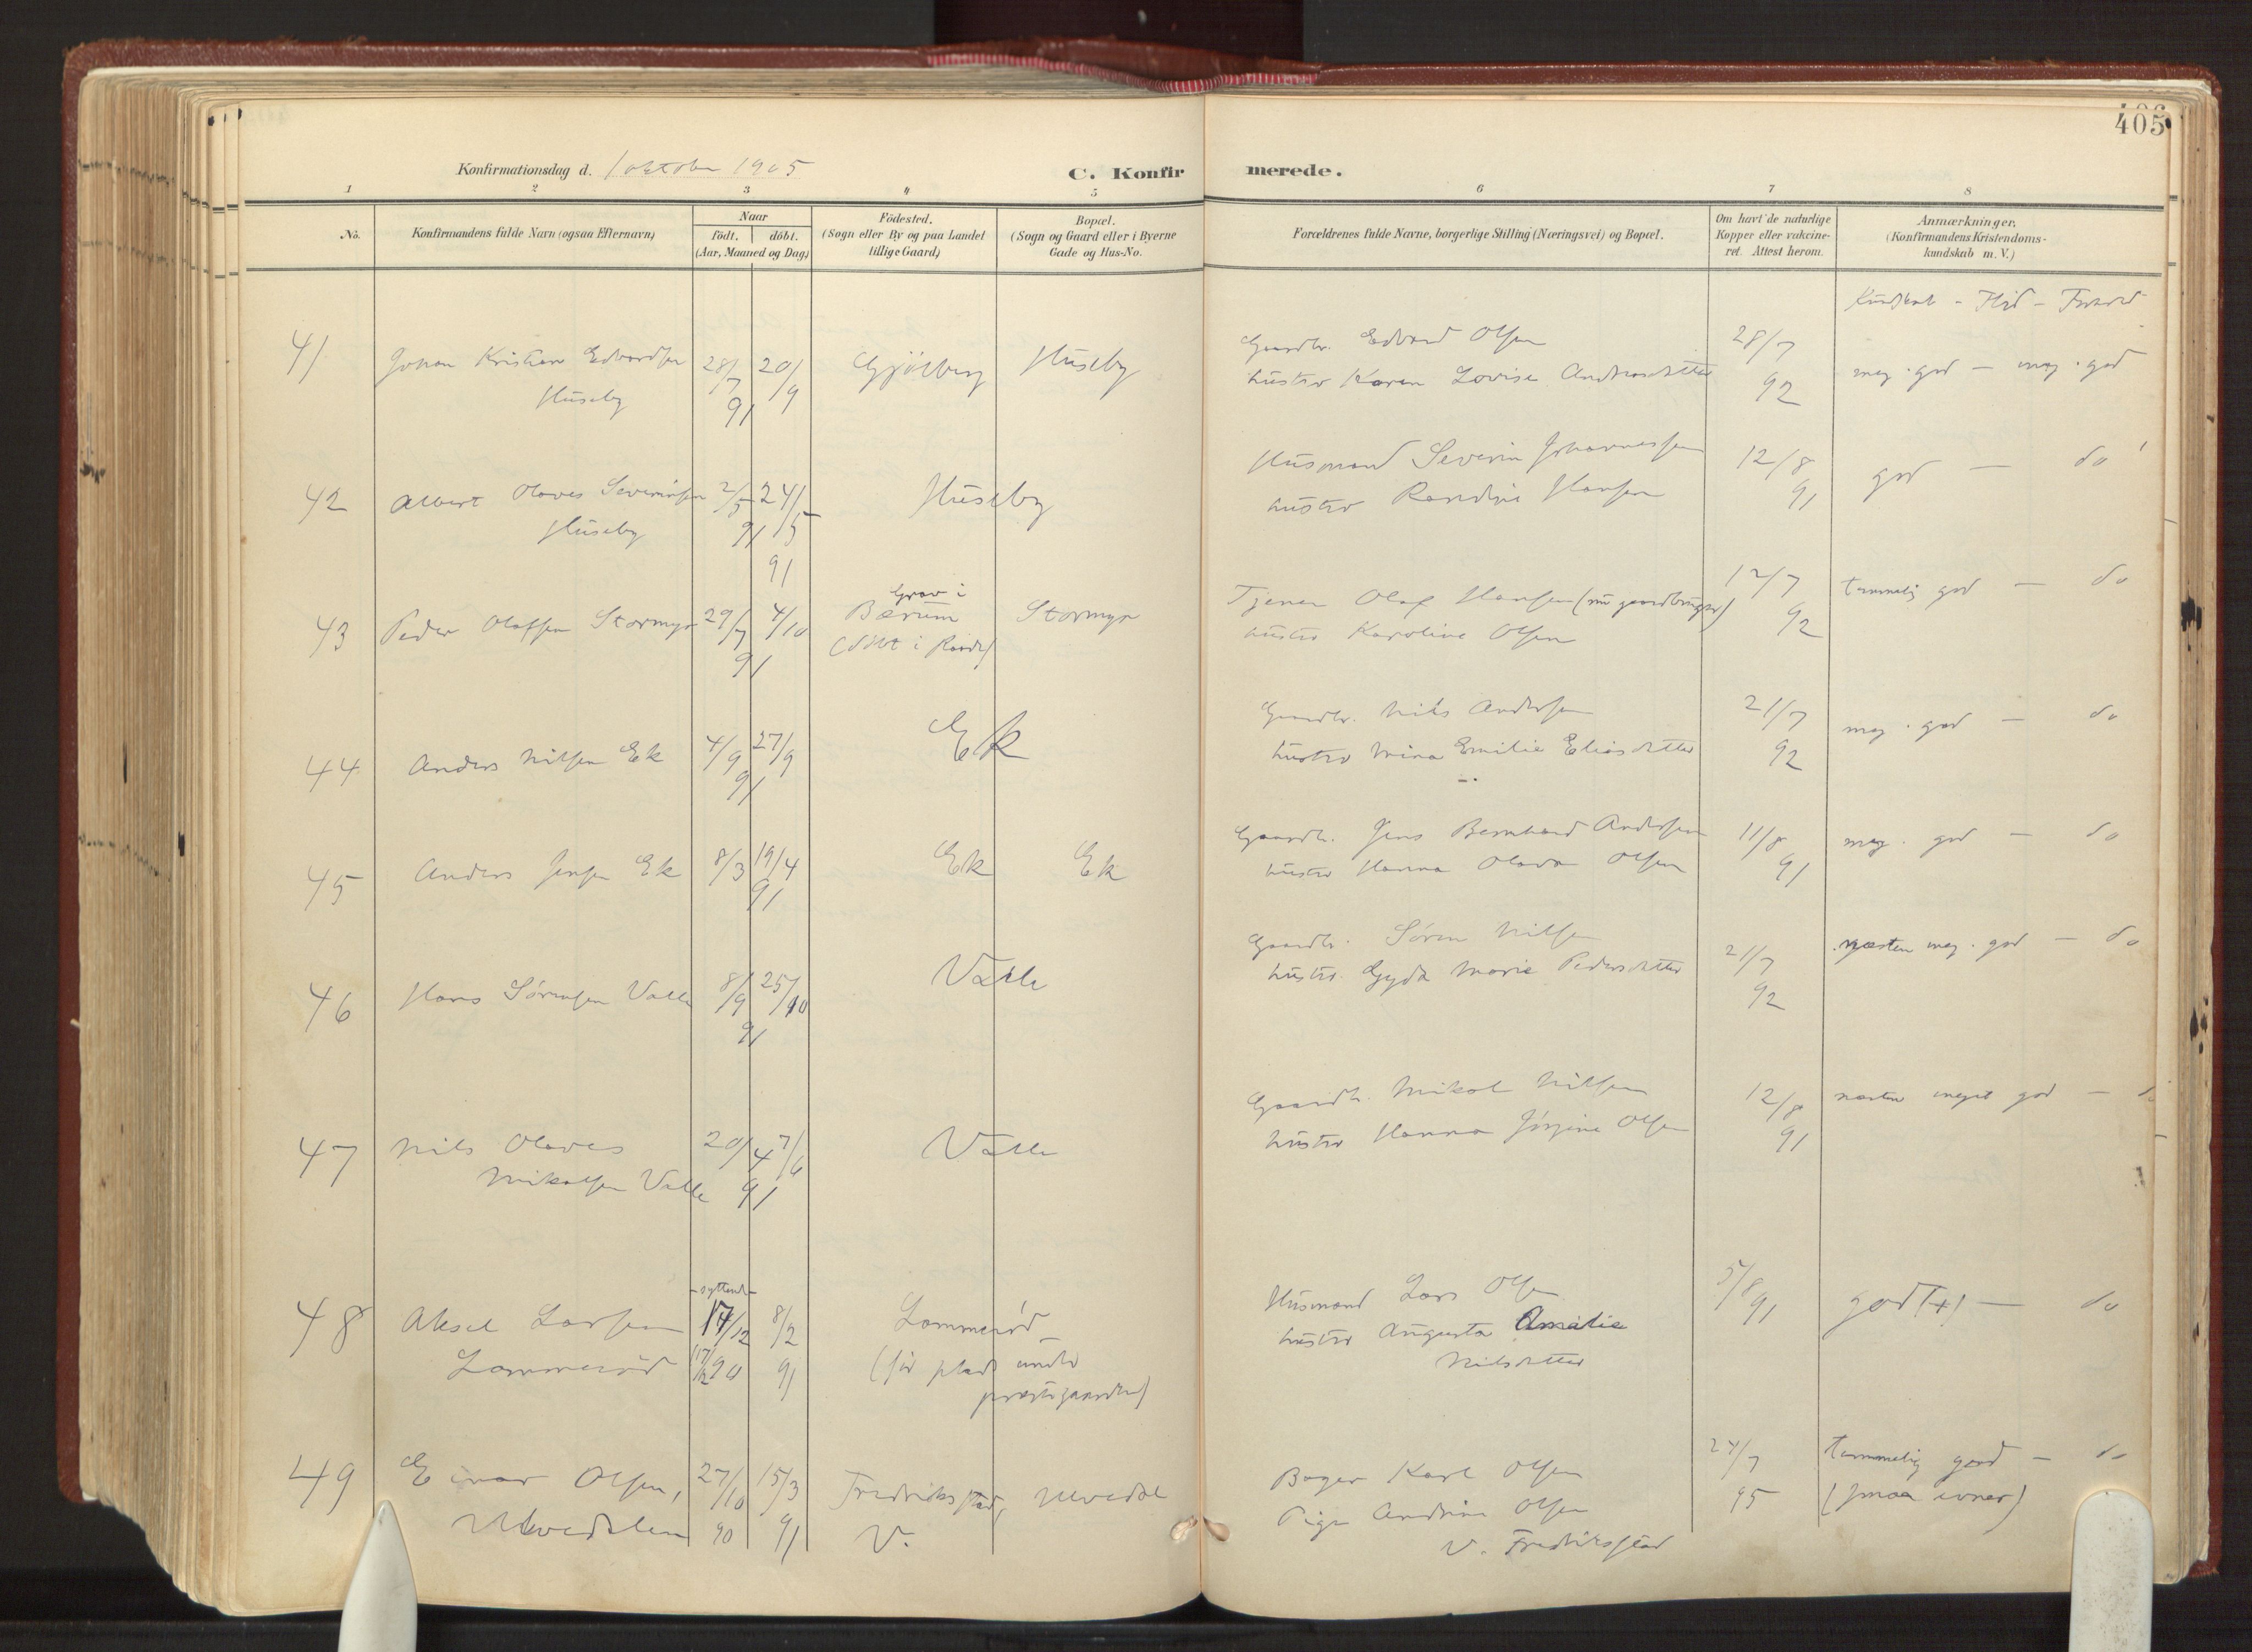 405
Konfirmationsdag d. 1 oktober 1905
C. Konfirmerede.
1 2 3 4 5 6 7 8
No.
Konfirmandens fulde Navn (ogsaa Efternavn)
Naar
födt. döbt.
(Aar, Maaned og Dag)
Födested.
(Sogn eller By og paa Landet
tillige Gaard)
Bopæl.
(Sogn og Gaard eller i Byerne
Gade og Hus-No.
Forældrenes fulde Navne, borgerlige Stilling (Næringsvei) og Bopæl.
Om havt de naturlige
Kopper eller vakcine-
ret. Attest herom.
Anmærkninger.
(Konfirmandens Kristendoms-
kundskab m. V.)
Kundskab - Flid - Forhold
41 Johan Kristian Edvardsen 28/7 20/9 Gjölberg Huseby
Huseby 91
Gaardbr. Edvard Olsen 28/7
hustru Karen Lovise Andreasdatter 92 meg. god - meg. god
42 Albert Olaves Severinsen 2/5 24/5 Huseby
Huseby 91 91
Husmand Severin Johannessen 12/8
hustru Randine Hansen 91 god - do
43 Peder Olafsen Stormyr 29/7 4/10 Grav i
Bærum Stormyr
91 (döbt i Raade)
Tjener Olaf Hansen (nu gaardbruger) 12/7 temmelig god - do
hustru Karoline Olsen 92
44 Anders Nilsen Ek 4/9 27/9 Ek
91
Gaardbr. Nils Andersen 21/7 meg. god - do
hustru Mina Emilie Eliasdatter 92
45 Anders Jensen Ek 8/3 19/4 Ek Ek
91
Gaardbr. Jens Bernhard Andersen 11/8 meg. god - do
hustru Hanna Olava Olsen 91
46 Hans Sörensen Valle 8/9 25/10 Valle
91
Gaardbr. Sören Nilsen 21/7 næsten meg. god - do
hustru Gyda Marie Pedersdatter 92
47 Nils Olaves 20/4 7/6 Valle
Mikalsen Valle 91
Gaardbr. Mikal Nilsen 12/8 næsten meget god -
hustru Hanna Jörgine Olsen 91
syttende
48 Aksel Larsen 17/12 8/2 Lammeröd
Lammeröd 17/12 90 91 (før plads under
prestegaarden)
Husmand Lars Olsen 5/8 91 god (+) - do
hustru Augusta Amalie
Nilsdatter
49 Einar Olsen, 27/10 15/3 Fredriksstad, Ulvedal
Ulvedalen 90 91 V.
Bager Karl Olsen 24/7 temmelig god - do
Pige Andrine Olsen 95 (smaa evner)
V. Fredriksstad